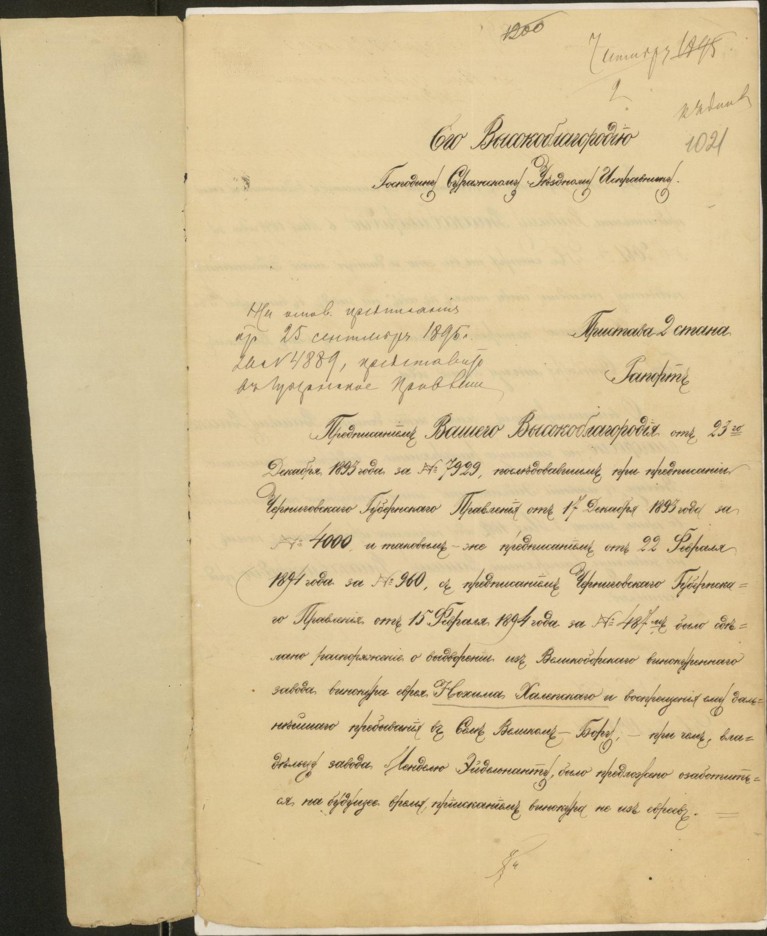 1200
1895
2
1021
Его Высокоблагородію
Господину Суражскому Уѣздному Исправнику.
На основ. предписанія
отъ 25 сентября 1895 г.
за № 4889, представить
въ Губернское Правленіе
Пристава 2 стана
Рапортъ
Предписаніемъ Вашего Высокоблагородія отъ 23го
Декабря 1893 года за № 7929, послѣдовавшимъ при предписаніи
Черниговскаго Губернскаго Правленія отъ 17 Декабря 1893 года за
№ 4000 и таковымъ-же предписаніемъ отъ 22 Февраля
1894 года за № 960, съ предписаніемъ Черниговскаго Губернска=
го Правленія отъ 15 Февраля 1894 года за № 487 было сдѣ=
лано распоряженіе о выдвореніи изъ Великоборскаго винокуреннаго
завода винокура еврея Нохима Халепскаго и воспрещенія ему даль=
нѣйшаго пребыванія въ Селѣ Великомъ-Борѣ, - при чемъ, вла=
дѣльцу завода Менделю Эйдельнанту, было предложено озаботить=
ся на будущее время пріисканіемъ винокура не изъ евреевъ.